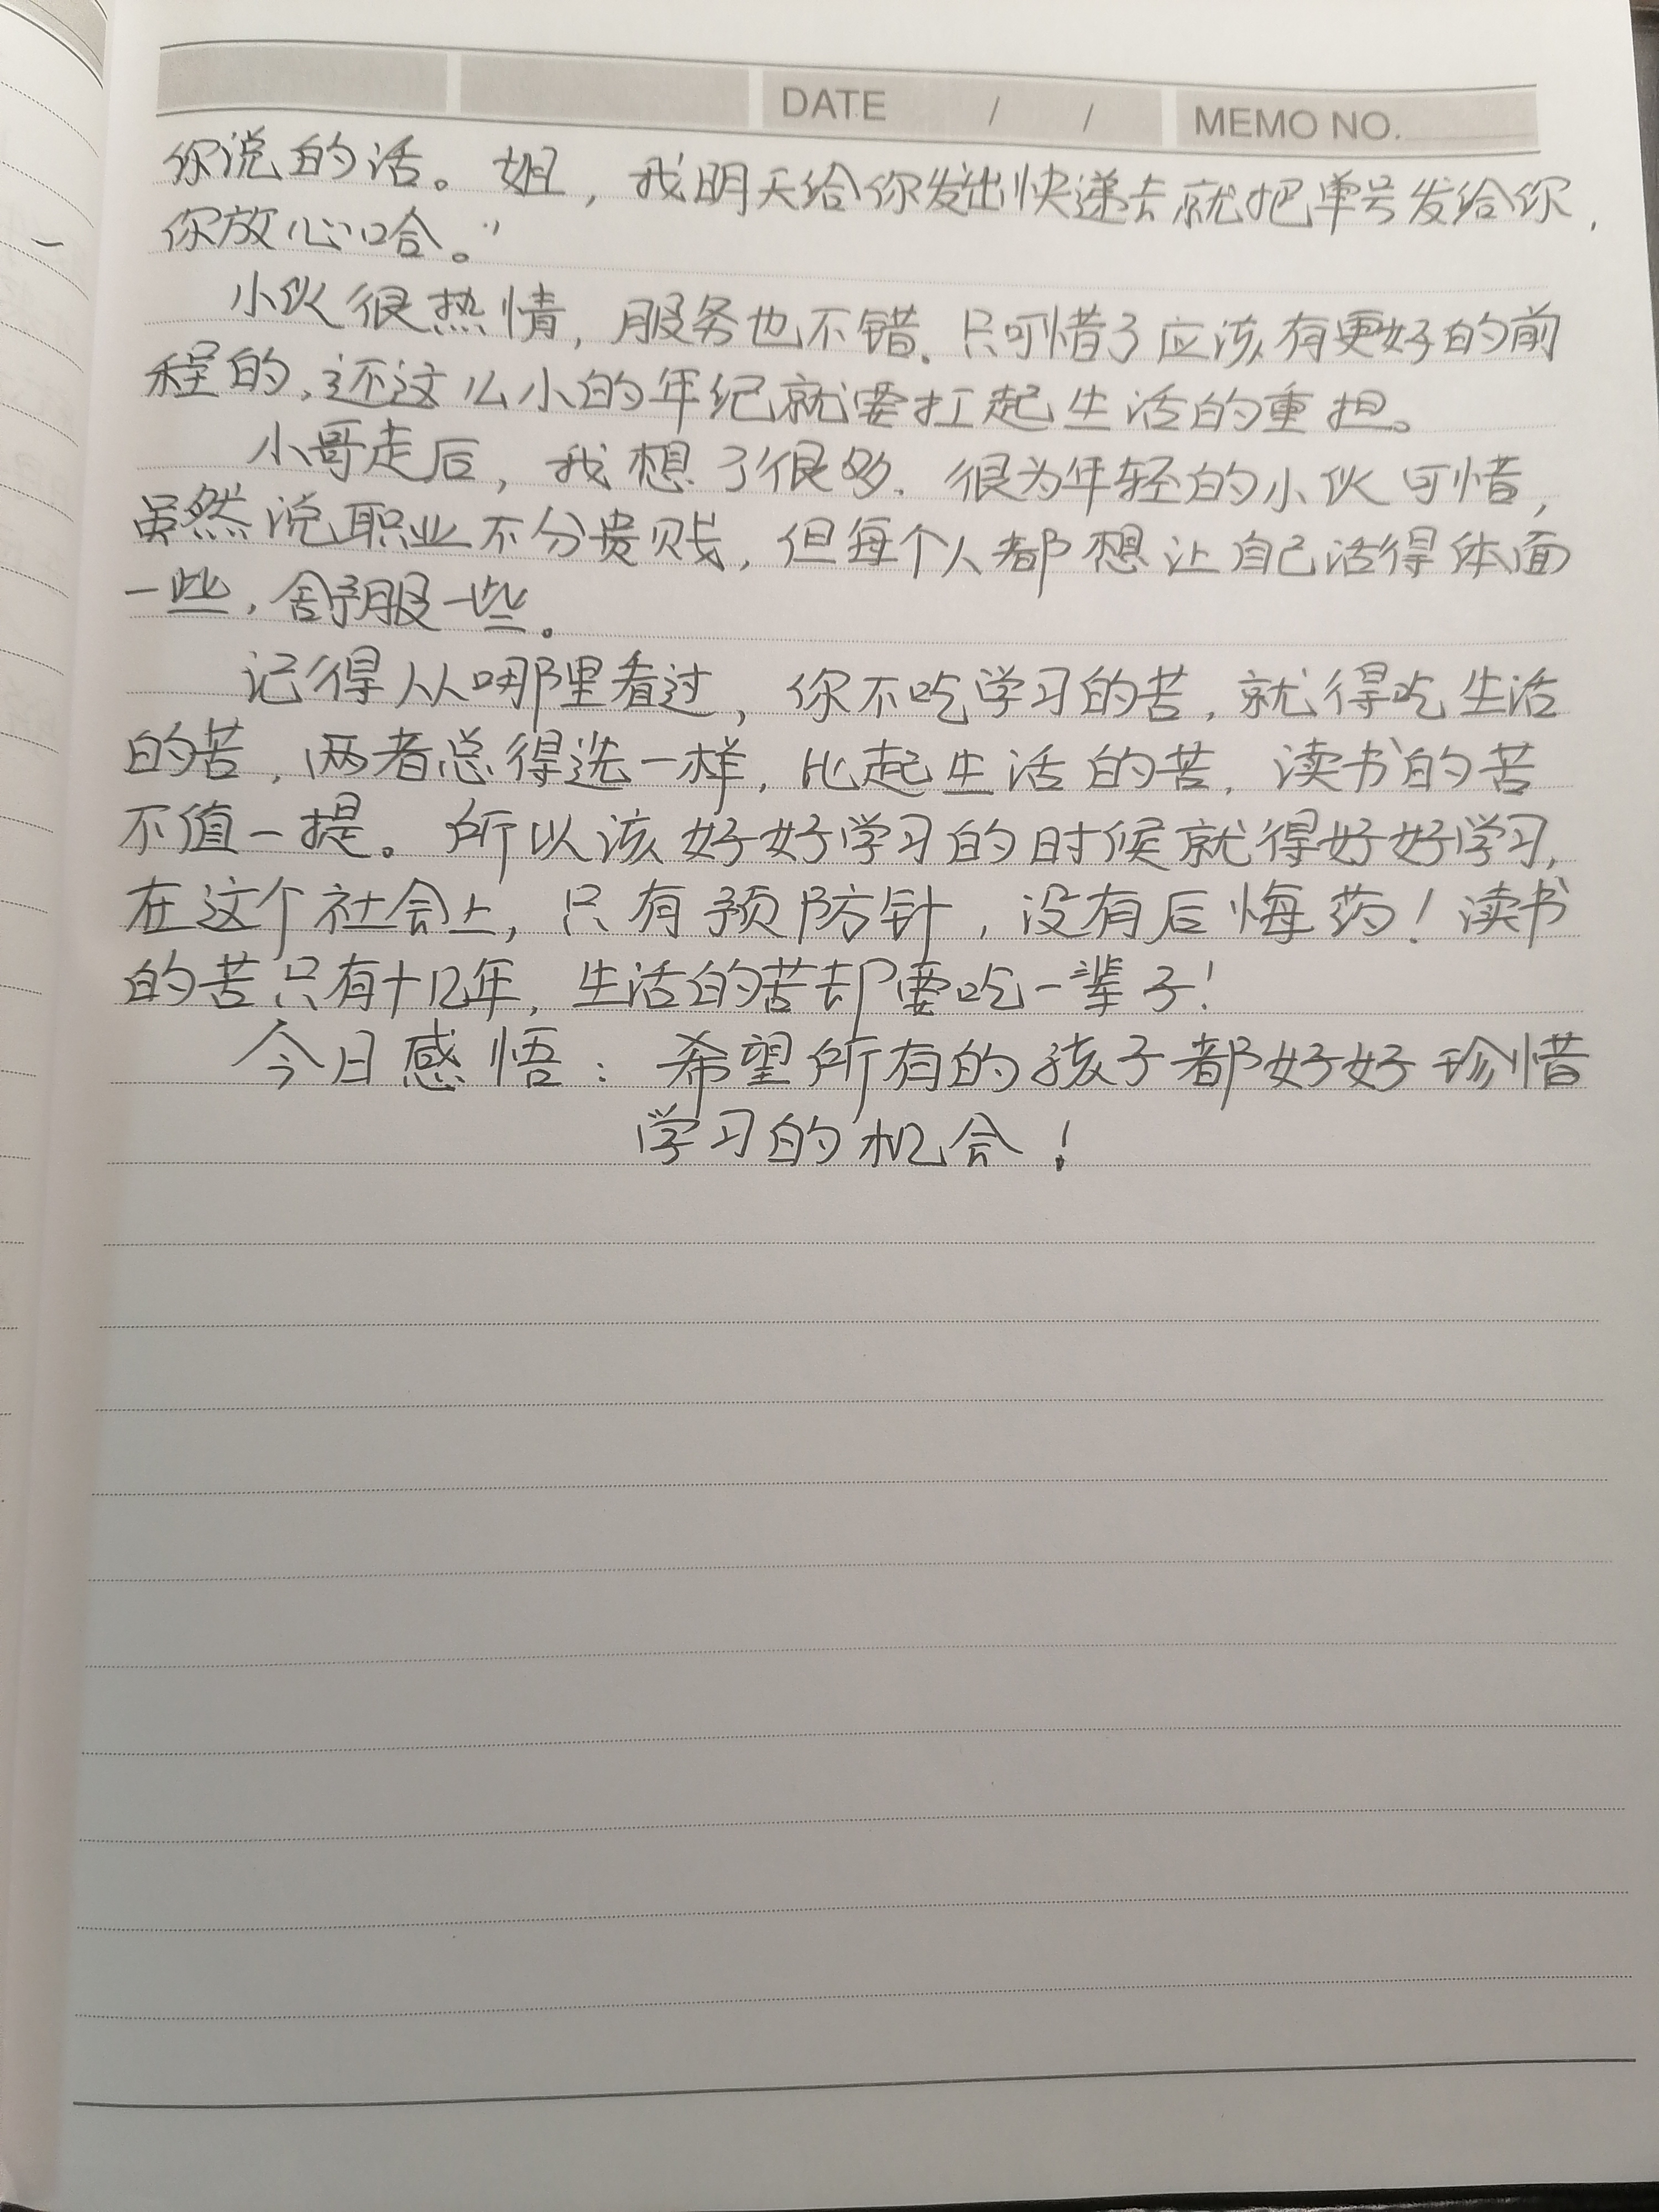 DATE / / MEMO NO.
你说的话。姐，我明天给你发出快递去就把单号发给你，
你放心哈。”
小伙很热情，服务也不错。只可惜了应该有更好的前
程的，还这么小的年纪就要扛起生活的重担。
小哥走后，我想了很多。很为年轻的小伙可惜，
虽然说职业不分贵贱，但每个人都想让自己活得体面
一些，舒服一些。
记得从哪里看过，你不吃学习的苦，就得吃生活
的苦，两者总得选一样，比起生活的苦，读书的苦
不值一提。所以该好好学习的时候就得好好学习，
在这个社会上，只有预防针，没有后悔药！读书
的苦只有十几年，生活的苦却要吃一辈子！
今日感悟：希望所有的孩子都好好珍惜
学习的机会！